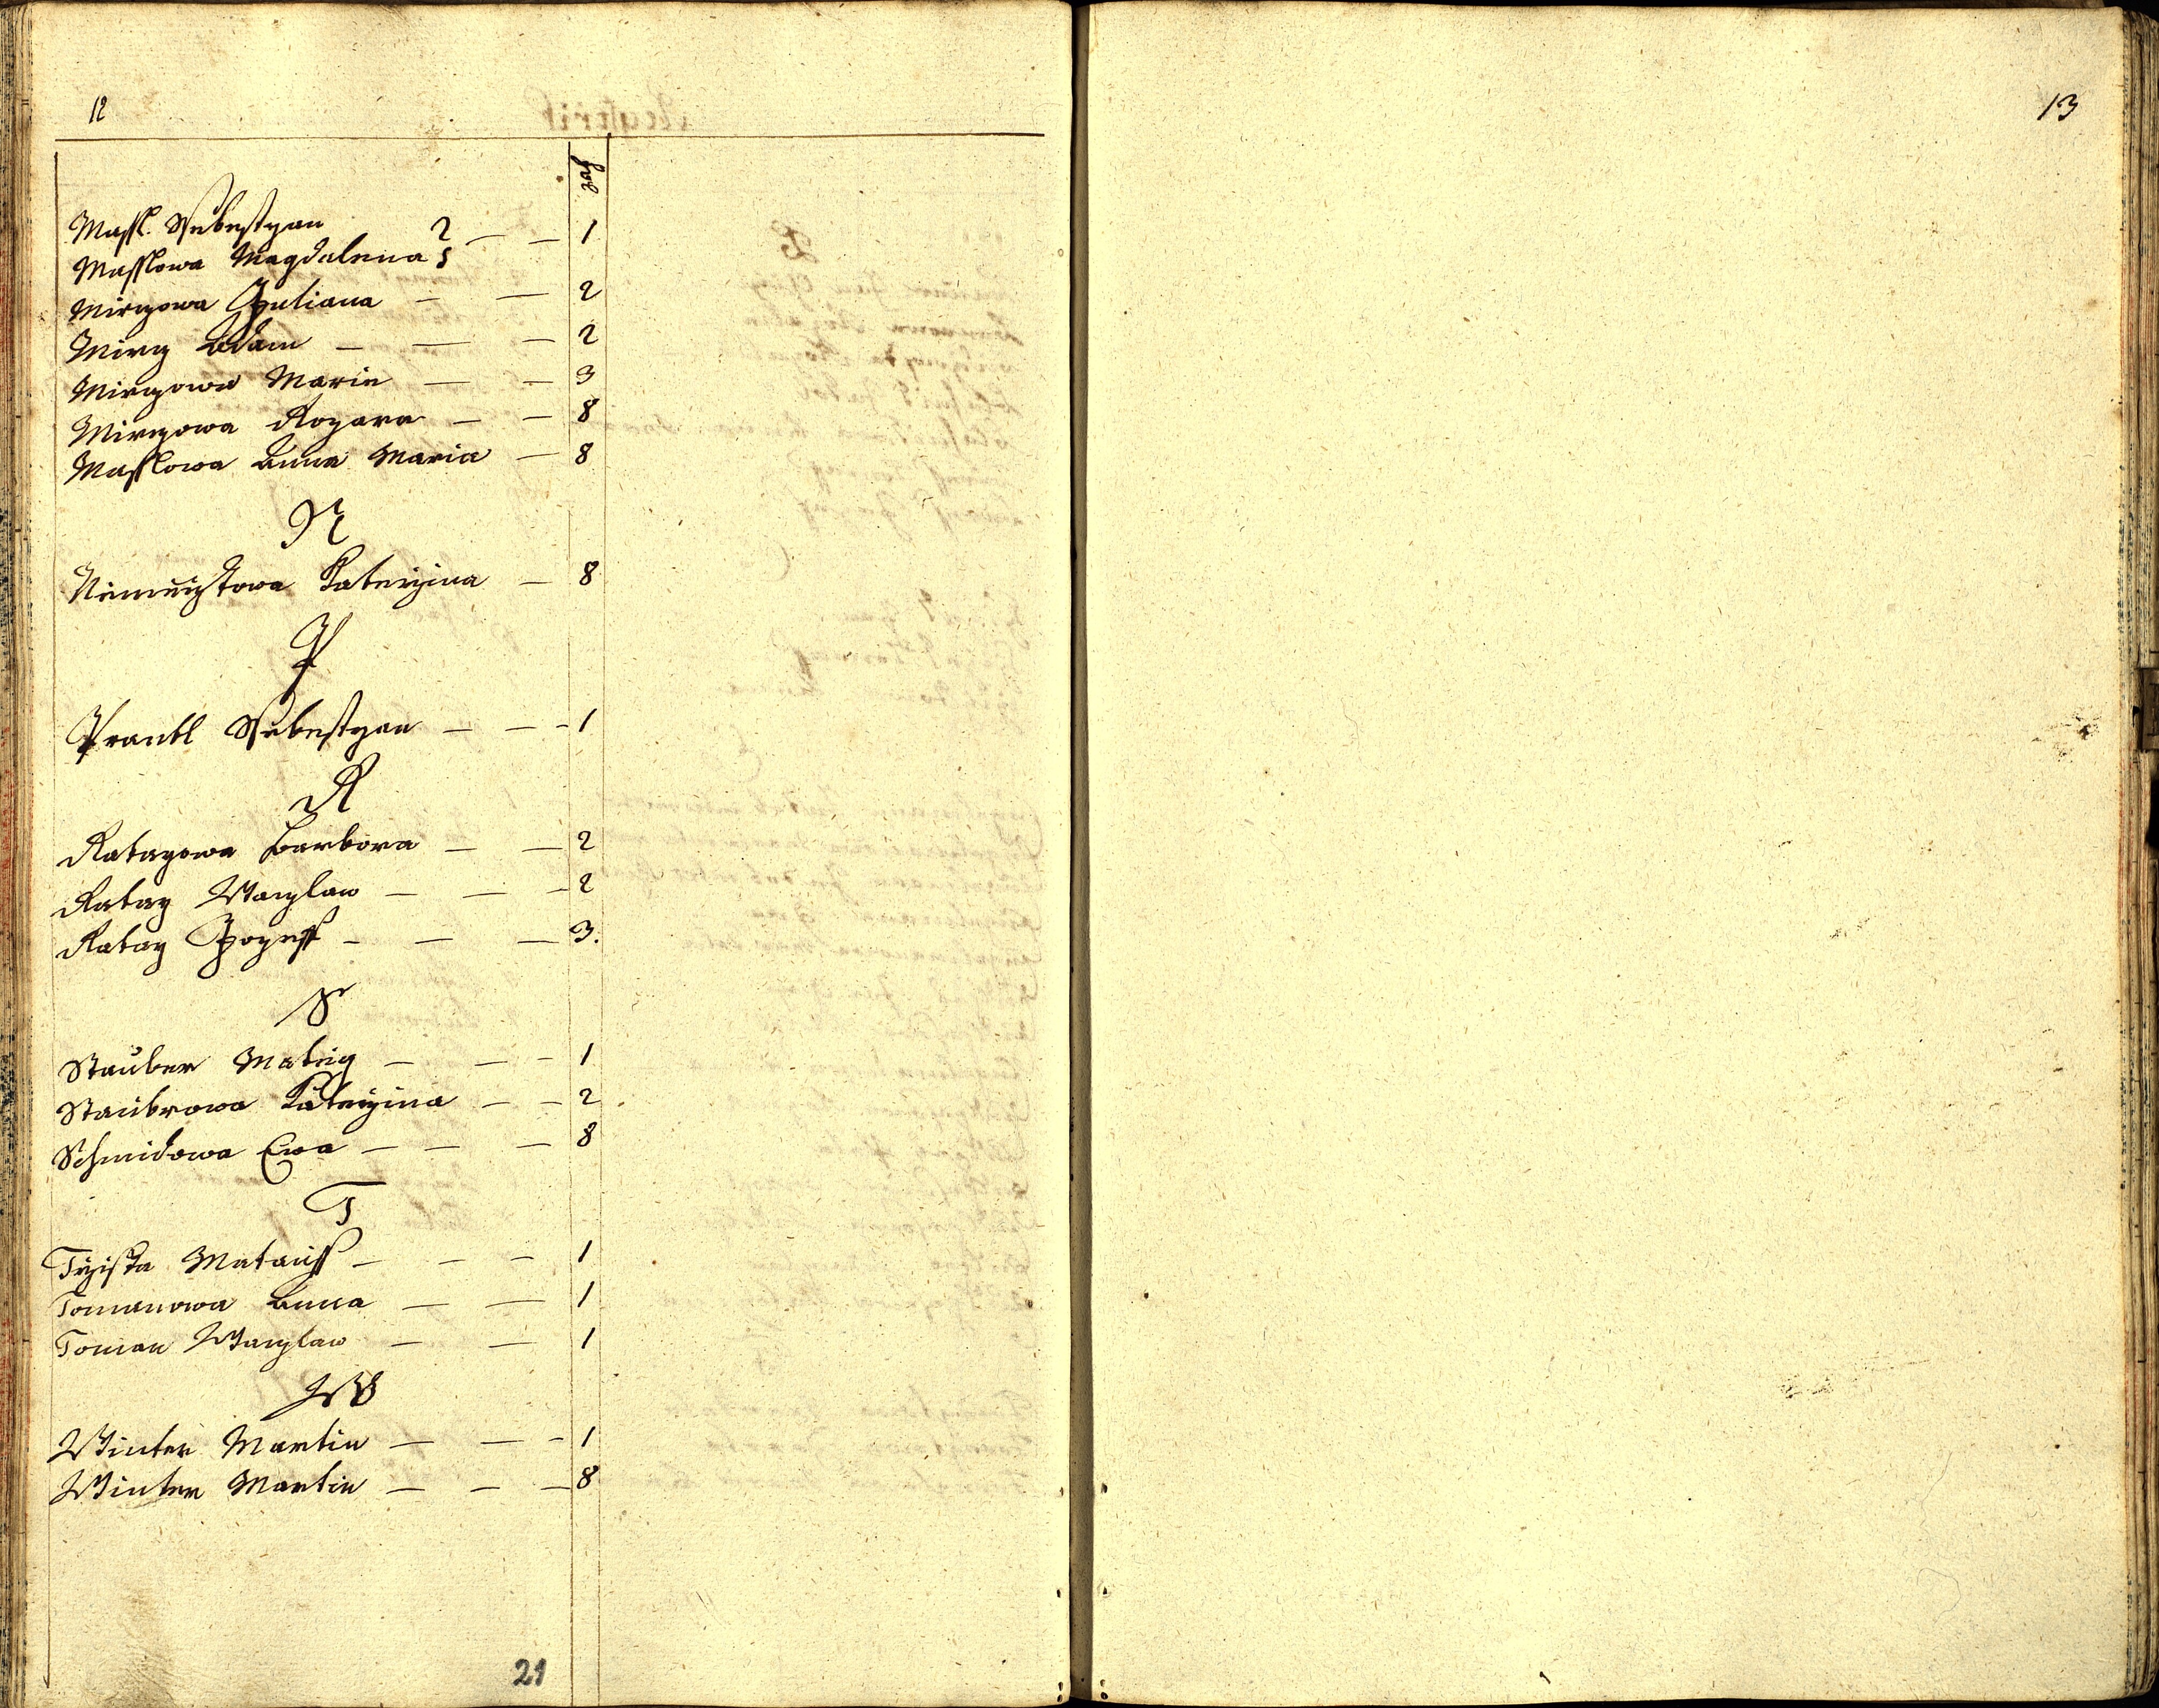 12
pag
Massl. Ssebestyan 1
Masslowa Magdalena
Mirczowa Juliana 2
Mircz Adam 2
Mirczowa Marie 3
Mirczowa Rozara 8
Masslowa Anna Maria 8
N
Katerzina 8
P
Prantl Ssebestyan 1
R
Ratagowa Barbora 2
Ratag Waczlaw 2
Ratag Jozeff 3.
S
Stauber Mateg 1
Staubrowa Katerzina 2
Schmidowa Ewa 8
T
Trziska Matauss 1
Tomanowa Anna 1
Toman Waczlaw 1
W
Winter Martin 1
Winter Martin 8
21
13